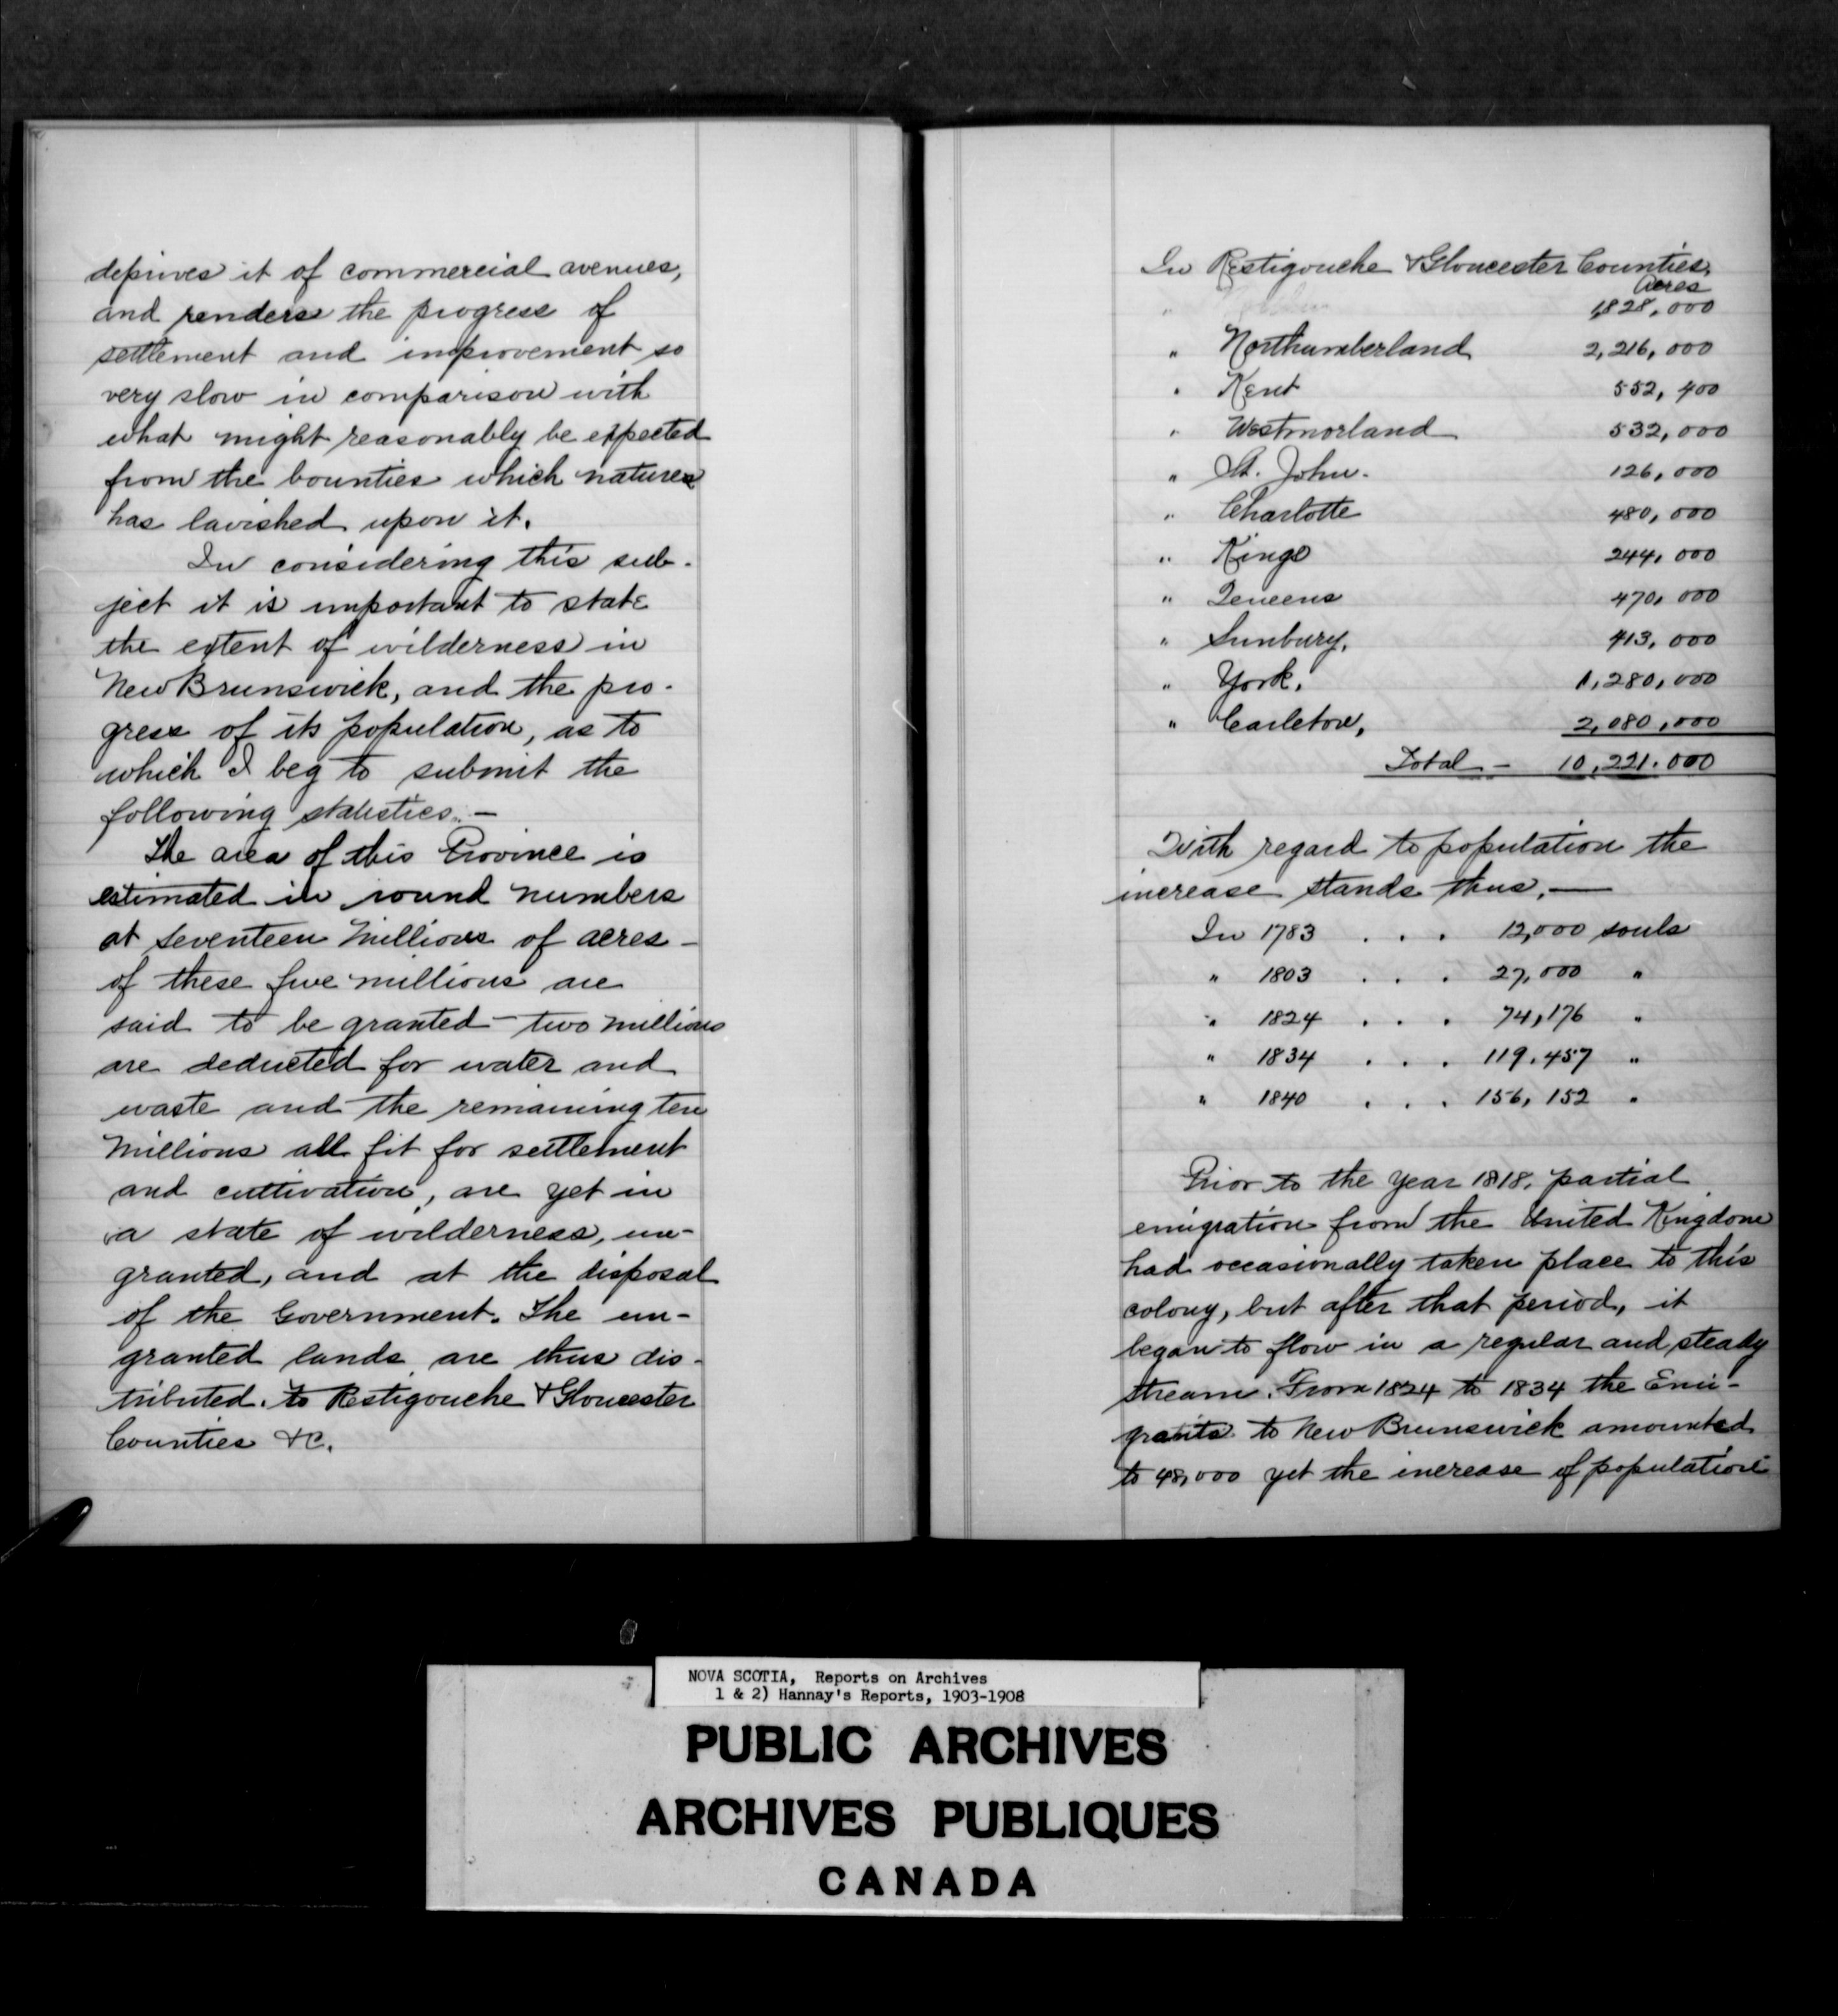 deprives it of commercial avenues,
and renders the progress of
settlement and improvement so
very slow in comparison with
what might reasonably be expected
from the bounties which nature
has lavished upon it.
In considering this sub-
ject it is important to state
the extent of wilderness in
New Brunswick, and the pro-
gress of its population, as to
which I beg to submit the
following statistics. —
The area of this Province is
estimated in round numbers
at seventeen Millions of acres —
of these five millions are
said to be granted — two millions
are deducted for water and
waste and the remaining ten
millions all fit for settlement
and cultivation, are yet in
a state of wilderness, un-
granted, and at the disposal
of the Government. The un-
granted lands are thus dis-
tributed. to Restigouche & Gloucester
Counties &c.
In Restigouche & Gloucester Counties,
Acres
" 1,828,000
" Northumberland 2,216,000
" Kent 552,400
" Westmorland 532,000
" St. John. 126,000
" Charlotte 480,000
" Kings 244,000
" Queens 470,000
" Sunbury, 413,000
" York, 1,280,000
" Carleton, 2,080,000
Total — 10,221.000
With regard to population the
increase stands thus, —
In 1783 . . . 12,000 souls
" 1803 . . . 27,000 "
" 1824 . . . 74,176 "
" 1834 . . . 119.457 "
" 1840 . . . 156,152 "
Prior to the year 1818, partial
emigration from the United Kingdom
had occasionally taken place to this
colony, but after that period, it
began to flow in a regular and steady
stream. From 1824 to 1834 the Emi-
grants to New Brunswick amounted
to 48,000 yet the increase of population
NOVA SCOTIA, Reports on Archives
1 & 2) Hannay's Reports, 1903-1908
PUBLIC ARCHIVES
ARCHIVES PUBLIQUES
CANADA